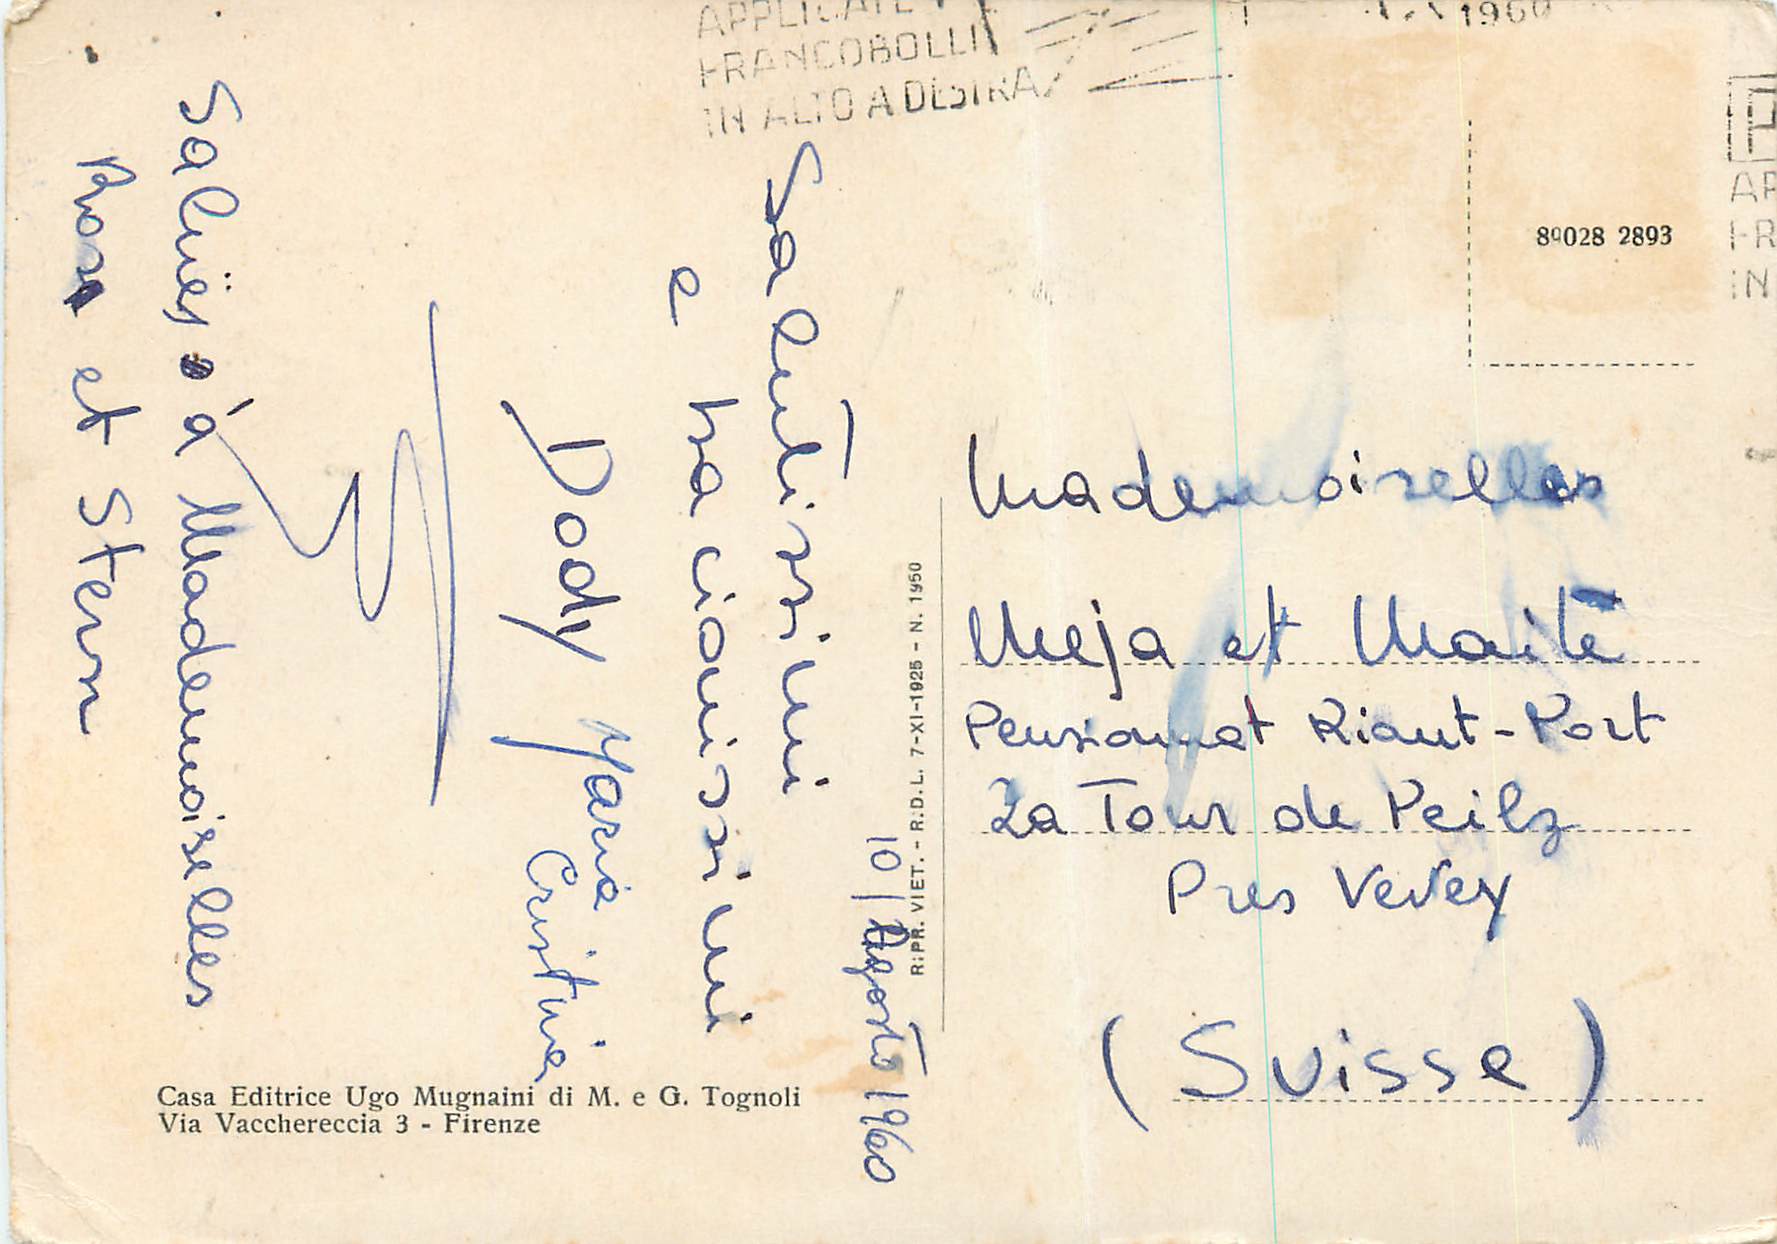 APPLICATE I
FRANCOBOLLI
IN ALTO A DESTRA
1960
AP
FR
IN
89028 2893
10/Agosto 1960
Salutissimi
e bacionissimi
Dody Maria
Cristina
Saluës à Mademoiselles
Rosa et Stern
Mademoiselles
Meja et Maïte
Pensionnat Riant-Port
La Tour de Peilz
Pres Vevey
(Suisse)
R:PR. VIET. - R.D.L. 7-XI-1925 - N. 1950
Casa Editrice Ugo Mugnaini di M. e G. Tognoli
Via Vacchereccia 3 - Firenze